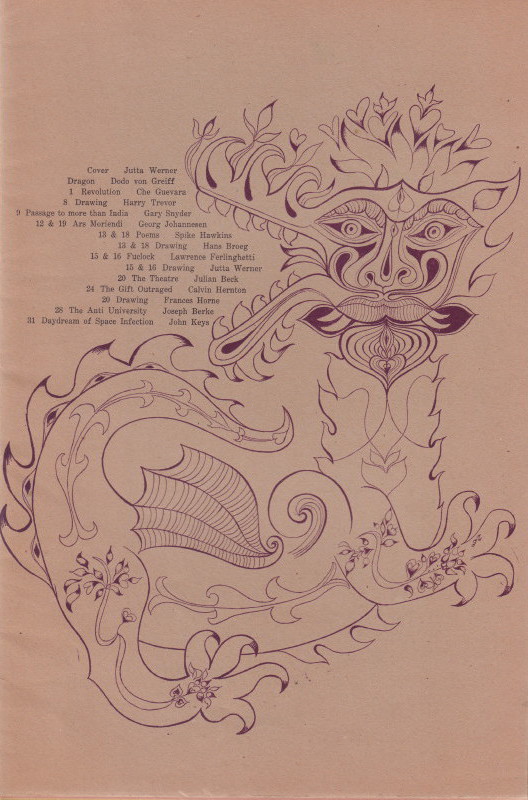 Cover Jutta Werner
Dragon Dodo von Greiff
1 Revolution Che Guevara
8 Drawing Harry Trevor
9 Passage to more than India Gary Snyder
12 & 19 Ars Moriendi Georg Johannesen
13 & 18 Poems Spike Hawkins
13 & 18 Drawing Hans Broeg
15 & 16 Fuclock Lawrence Ferlinghetti
15 & 16 Drawing Jutta Werner
20 The Theatre Julian Beck
24 The Gift Outraged Calvin Hernton
20 Drawing Frances Horne
28 The Anti University Joseph Berke
31 Daydream of Space Infection John Keys